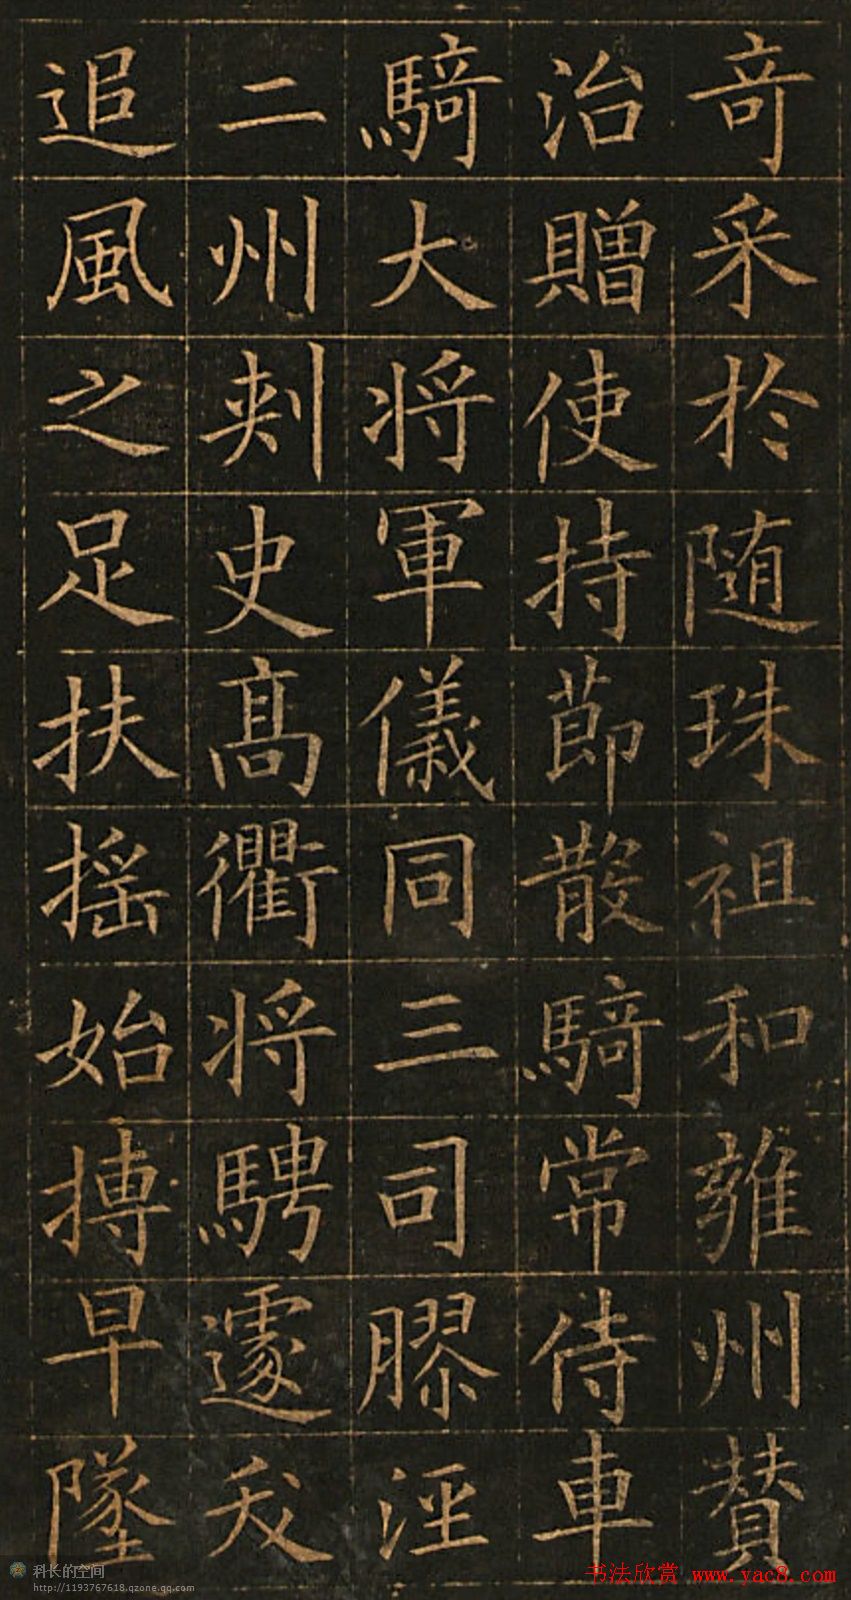 竒采於随珠祖和雍州賛
治贈使持節散騎常侍車
騎大将軍儀同三司膠涇
二州刺史髙衢将騁遽夭
追風之足扶摇始搏早墜
科长的空间
http://1193767618.qzone.qq.com
书法欣赏 www.yac8.com